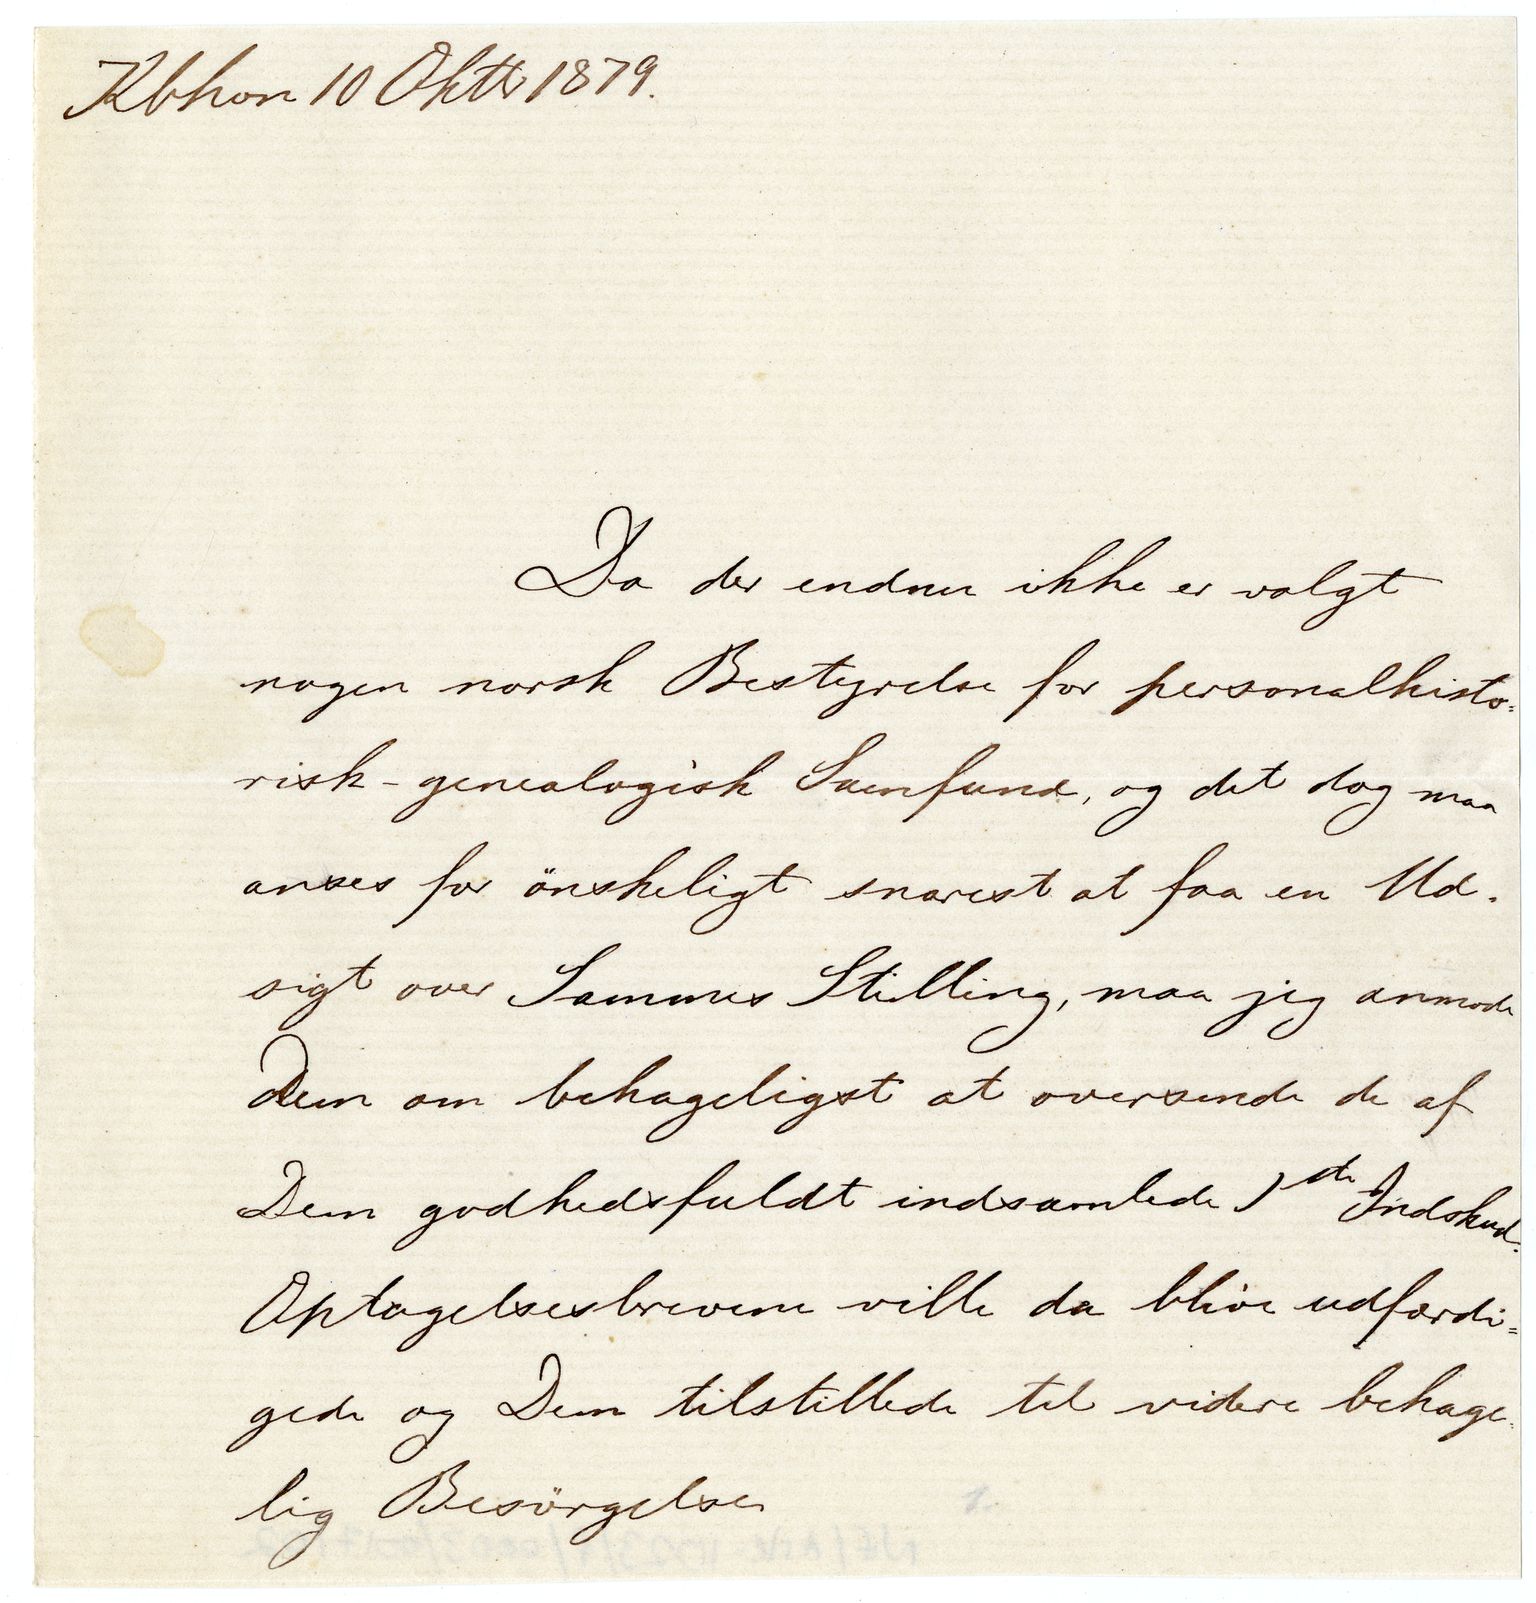 Kbhvn 10 Oktb 1879.
Da der endnu ikke er valgt
nogen norsk Bestyrelse for personalhisto=
risk-genealogisk Samfund, og det dog maa
anses for önskeligt snarest at faa en Ud-
sigt over Sammes Stilling, maa jeg anmode
Dem om behageligst at oversende de af
Dem godhedsfuldt indsamlede 1ste Indskud.
Optagelsesbrevene ville da blive udfærdi=
gede og Dem tilstillede til videre behage-
lig Besörgelse